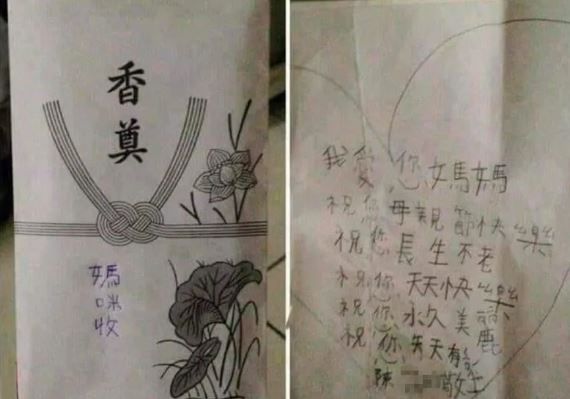 香奠
媽咪收
我愛您媽媽
祝您母親節快樂
祝您長生不老
祝您天天快樂
祝您永久美麗
祝您天天有
陳
敬上